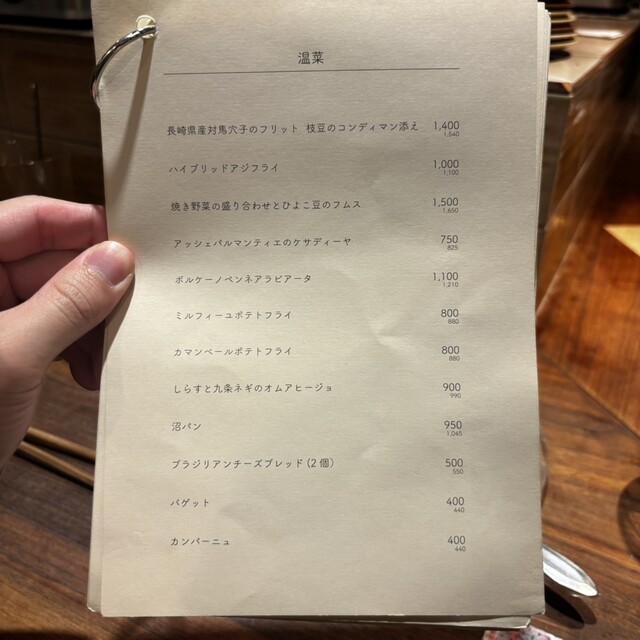 温菜
長崎県産対馬穴子のフリット 枝豆のコンディマン添え 1,400
1,540
ハイブリッドアジフライ 1,000
1,100
焼き野菜の盛り合わせとひよこ豆のフムス 1,500
1,650
アッシェパルマンティエのケサディーヤ 750
825
ボルケーノペンネアラビアータ 1,100
1,210
ミルフィーユポテトフライ 800
880
カマンベールポテトフライ 800
880
しらすと九条ネギのオムアヒージョ 900
990
沼パン 950
1,045
ブラジリアンチーズブレッド(2個) 500
550
バゲット 400
440
カンパーニュ 400
440